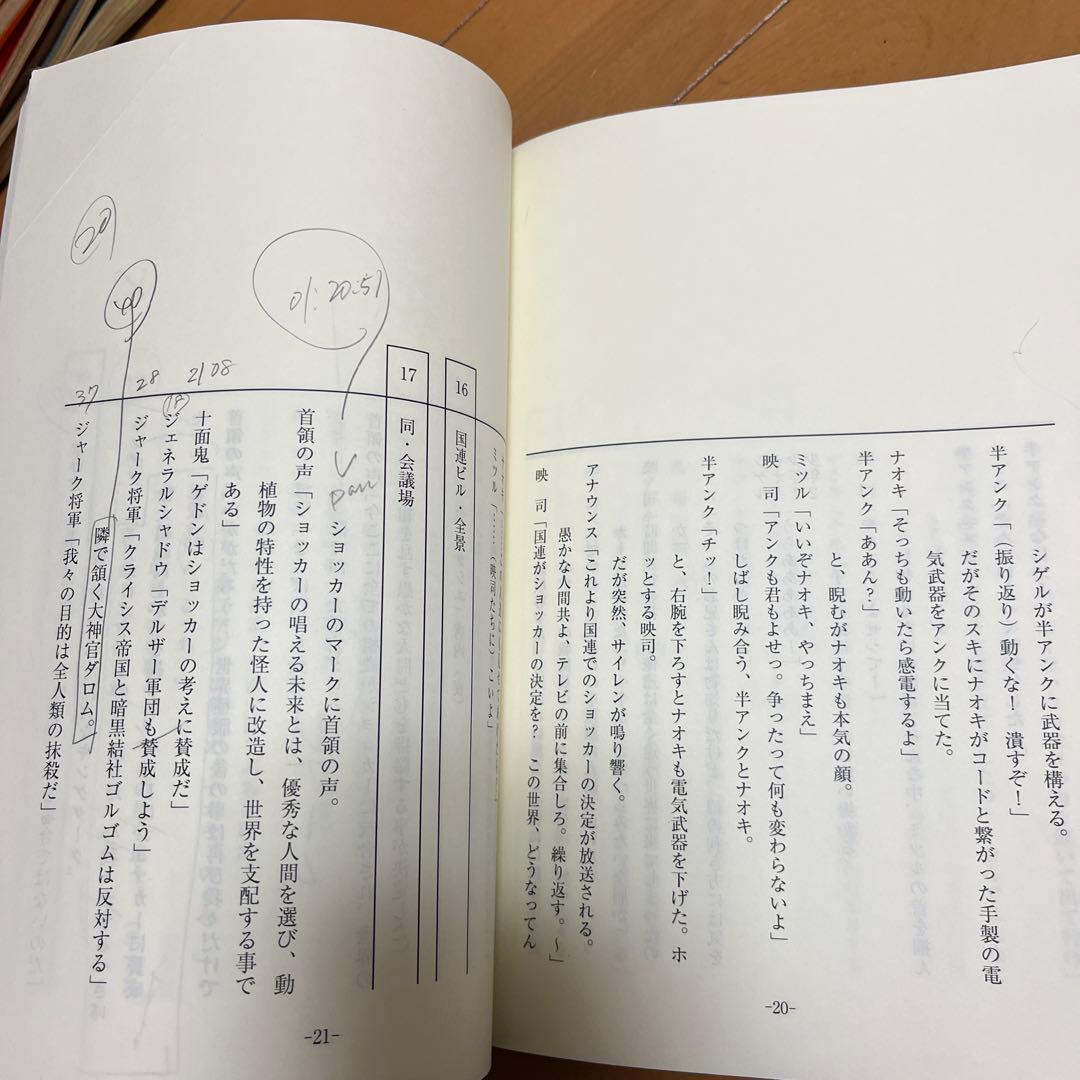 シゲルが半アンクに武器を構える。
半アンク「(振り返り)動くな!潰すぞ!」
だがそのスキにナオキがコードと繋がった手製の電
気武器をアンクに当てた。
ナオキ「そっちも動いたら感電するよ」
半アンク「ああん?」
と、睨むがナオキも本気の顔。
ミツル「いいぞナオキ、やっちまえ」
映 司「アンクも君もよせっ。争ったって何も変わらないよ」
しばし睨み合う、半アンクとナオキ。
半アンク「チッ!」
と、右腕を下ろすとナオキも電気武器を下げた。ホ
ッとする映司。
だが突然、サイレンが鳴り響く。
アナウンス「これより国連でのショッカーの決定が放送される。
愚かな人間共よ、テレビの前に集合しろ。繰り返す。~」
映 司「国連がショッカーの決定を?この世界、どうなってん
-20-
ミツル「……(映司たちに)こいよ」
16
国連ビル・全景
17
同・会議場
01:20:51
pan
ショッカーのマークに首領の声。
首領の声「ショッカーの唱える未来とは、優秀な人間を選び、動
植物の特性を持った怪人に改造し、世界を支配する事で
ある」
2108
十面鬼「ゲドンはショッカーの考えに賛成だ」
18
ジェネラルシャドウ「デルザー軍団も賛成しよう」
28
ジャーク将軍「クライシス帝国と暗黒結社ゴルゴムは反対する」
隣で頷く大神官ダロム。
37
ジャーク将軍「我々の目的は全人類の抹殺だ」
-21-